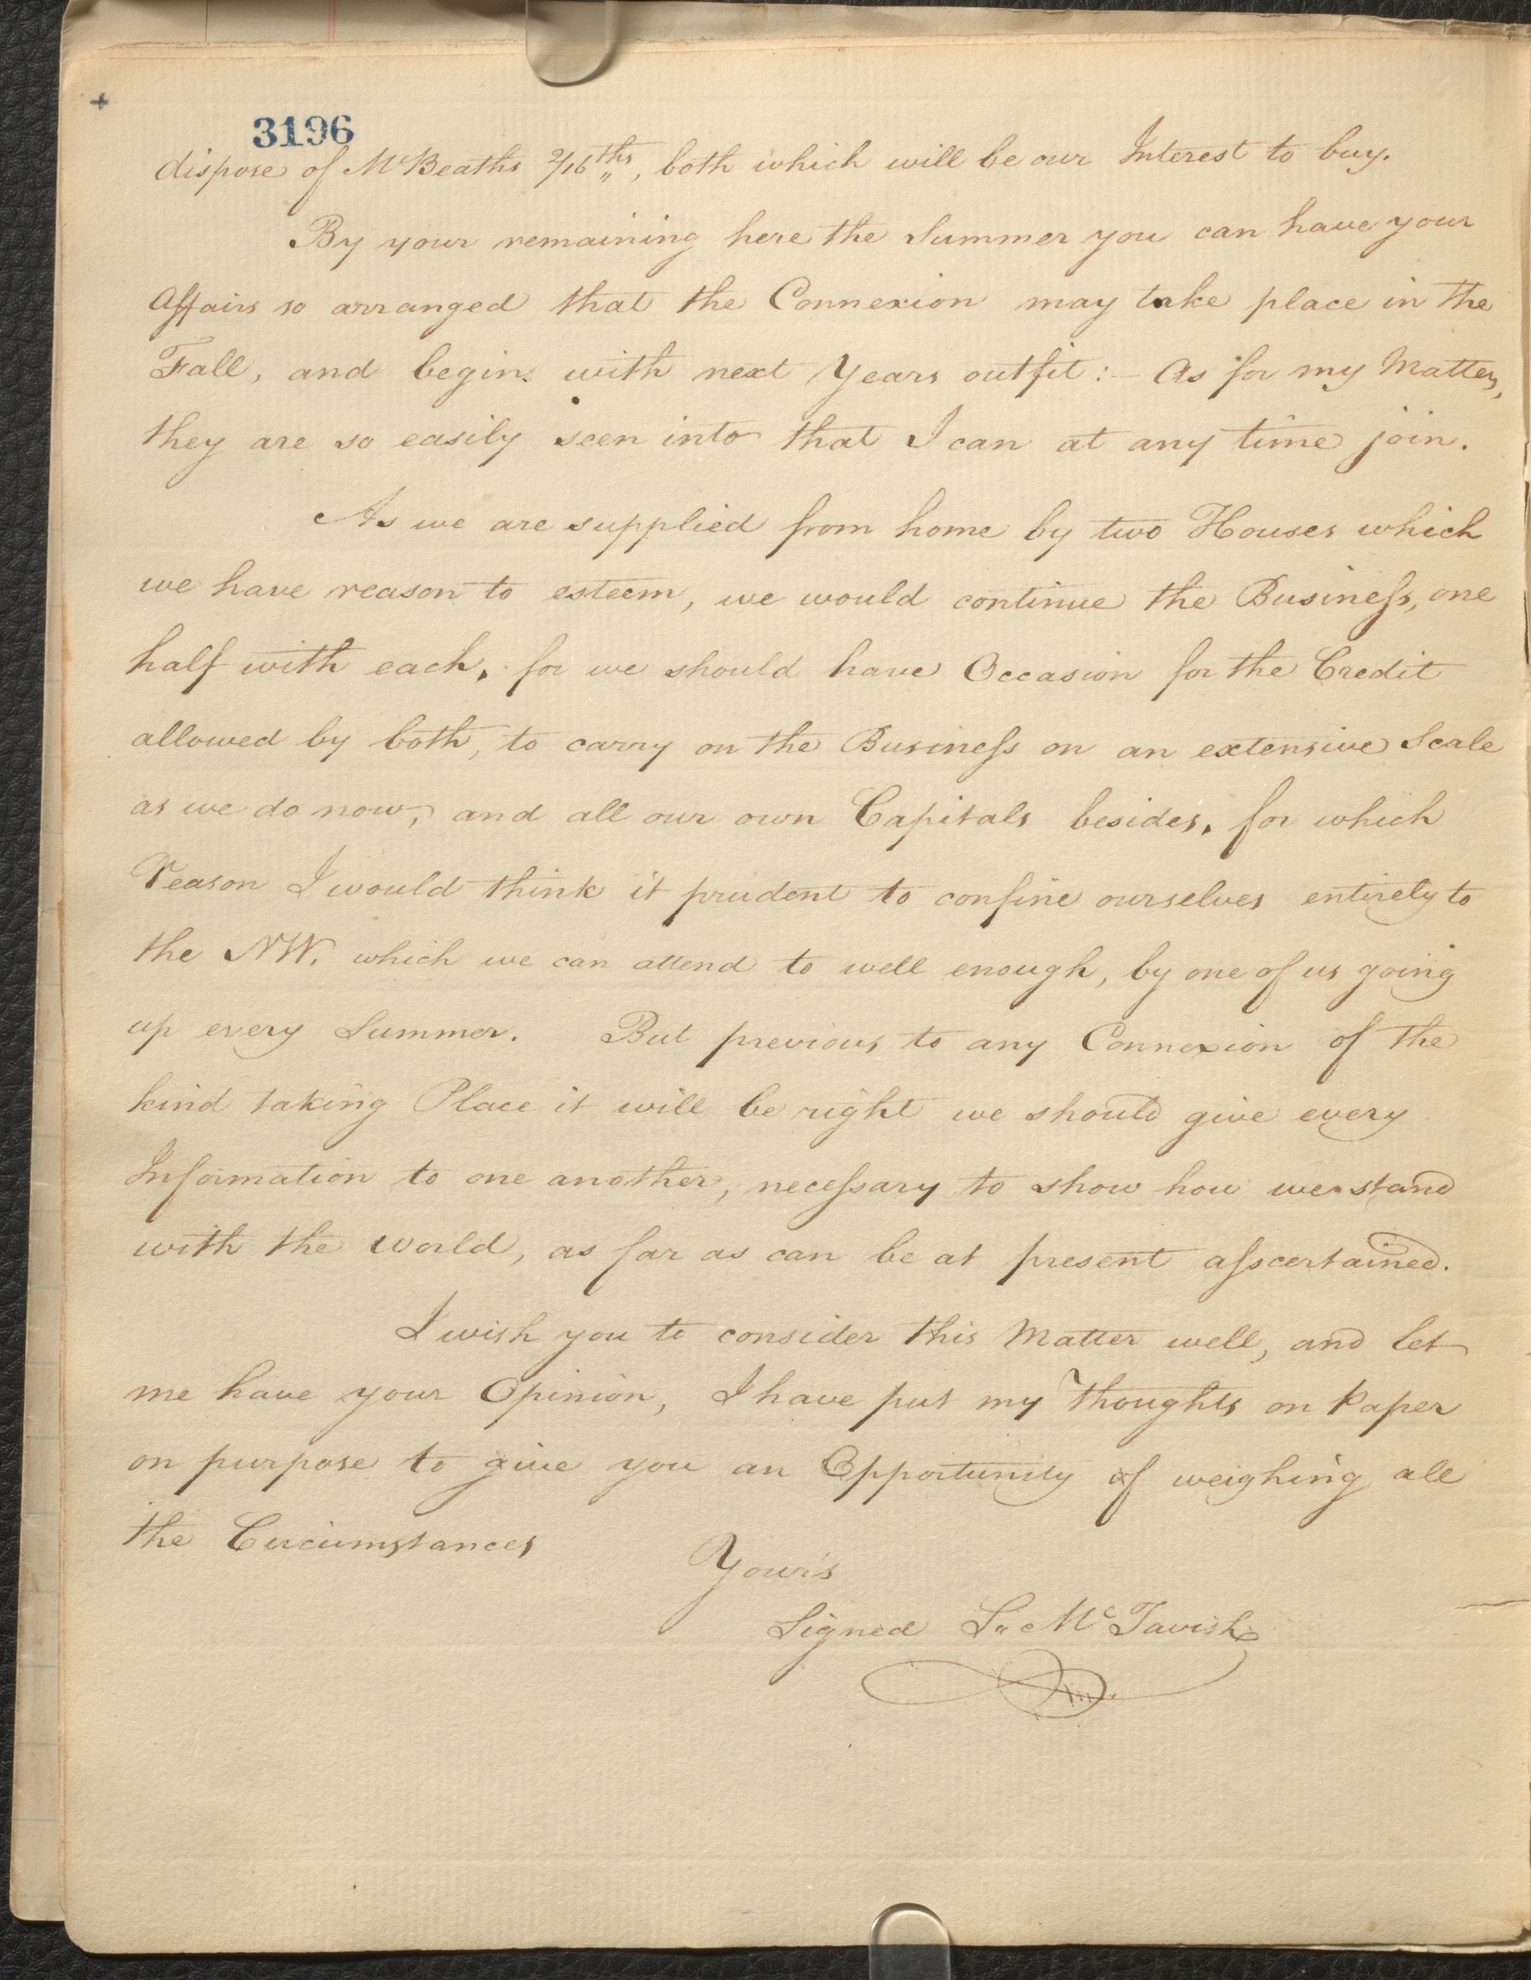 3196
dispose of McBeaths 2/16ths, both which will be our Interest to buy.
By your remaining here the Summer you can have your
Affairs so arranged that the Connexion may take place in the
Fall, and begin with next Years outfit :- As for my Matters,
they are so easily seen into that I can at any time join.
As we are supplied from home by two Houses which
we have reason to esteem, we would continue the Business, one
half with each, for we should have Occasion for the Credit
allowed by both, to carry on the Business on an extensive Scale
as we do now, and all our own Capitals besides, for which
reason I would think it prudent to confine ourselves entirely to
the NW. which we can attend to well enough, by one of us going
up every Summer. But previous to any Connexion of the
kind taking Place it will be right we should give every
Information to one another, necessary to show how we stand
with the world, as far as can be at present asscertained.
I wish you to consider this Matter well, and let
me have your Opinion, I have put my Thoughts on Paper
on purpose to give you an Opportunity of weighing all
the Circumstances
Your's
Signed S. McTavish